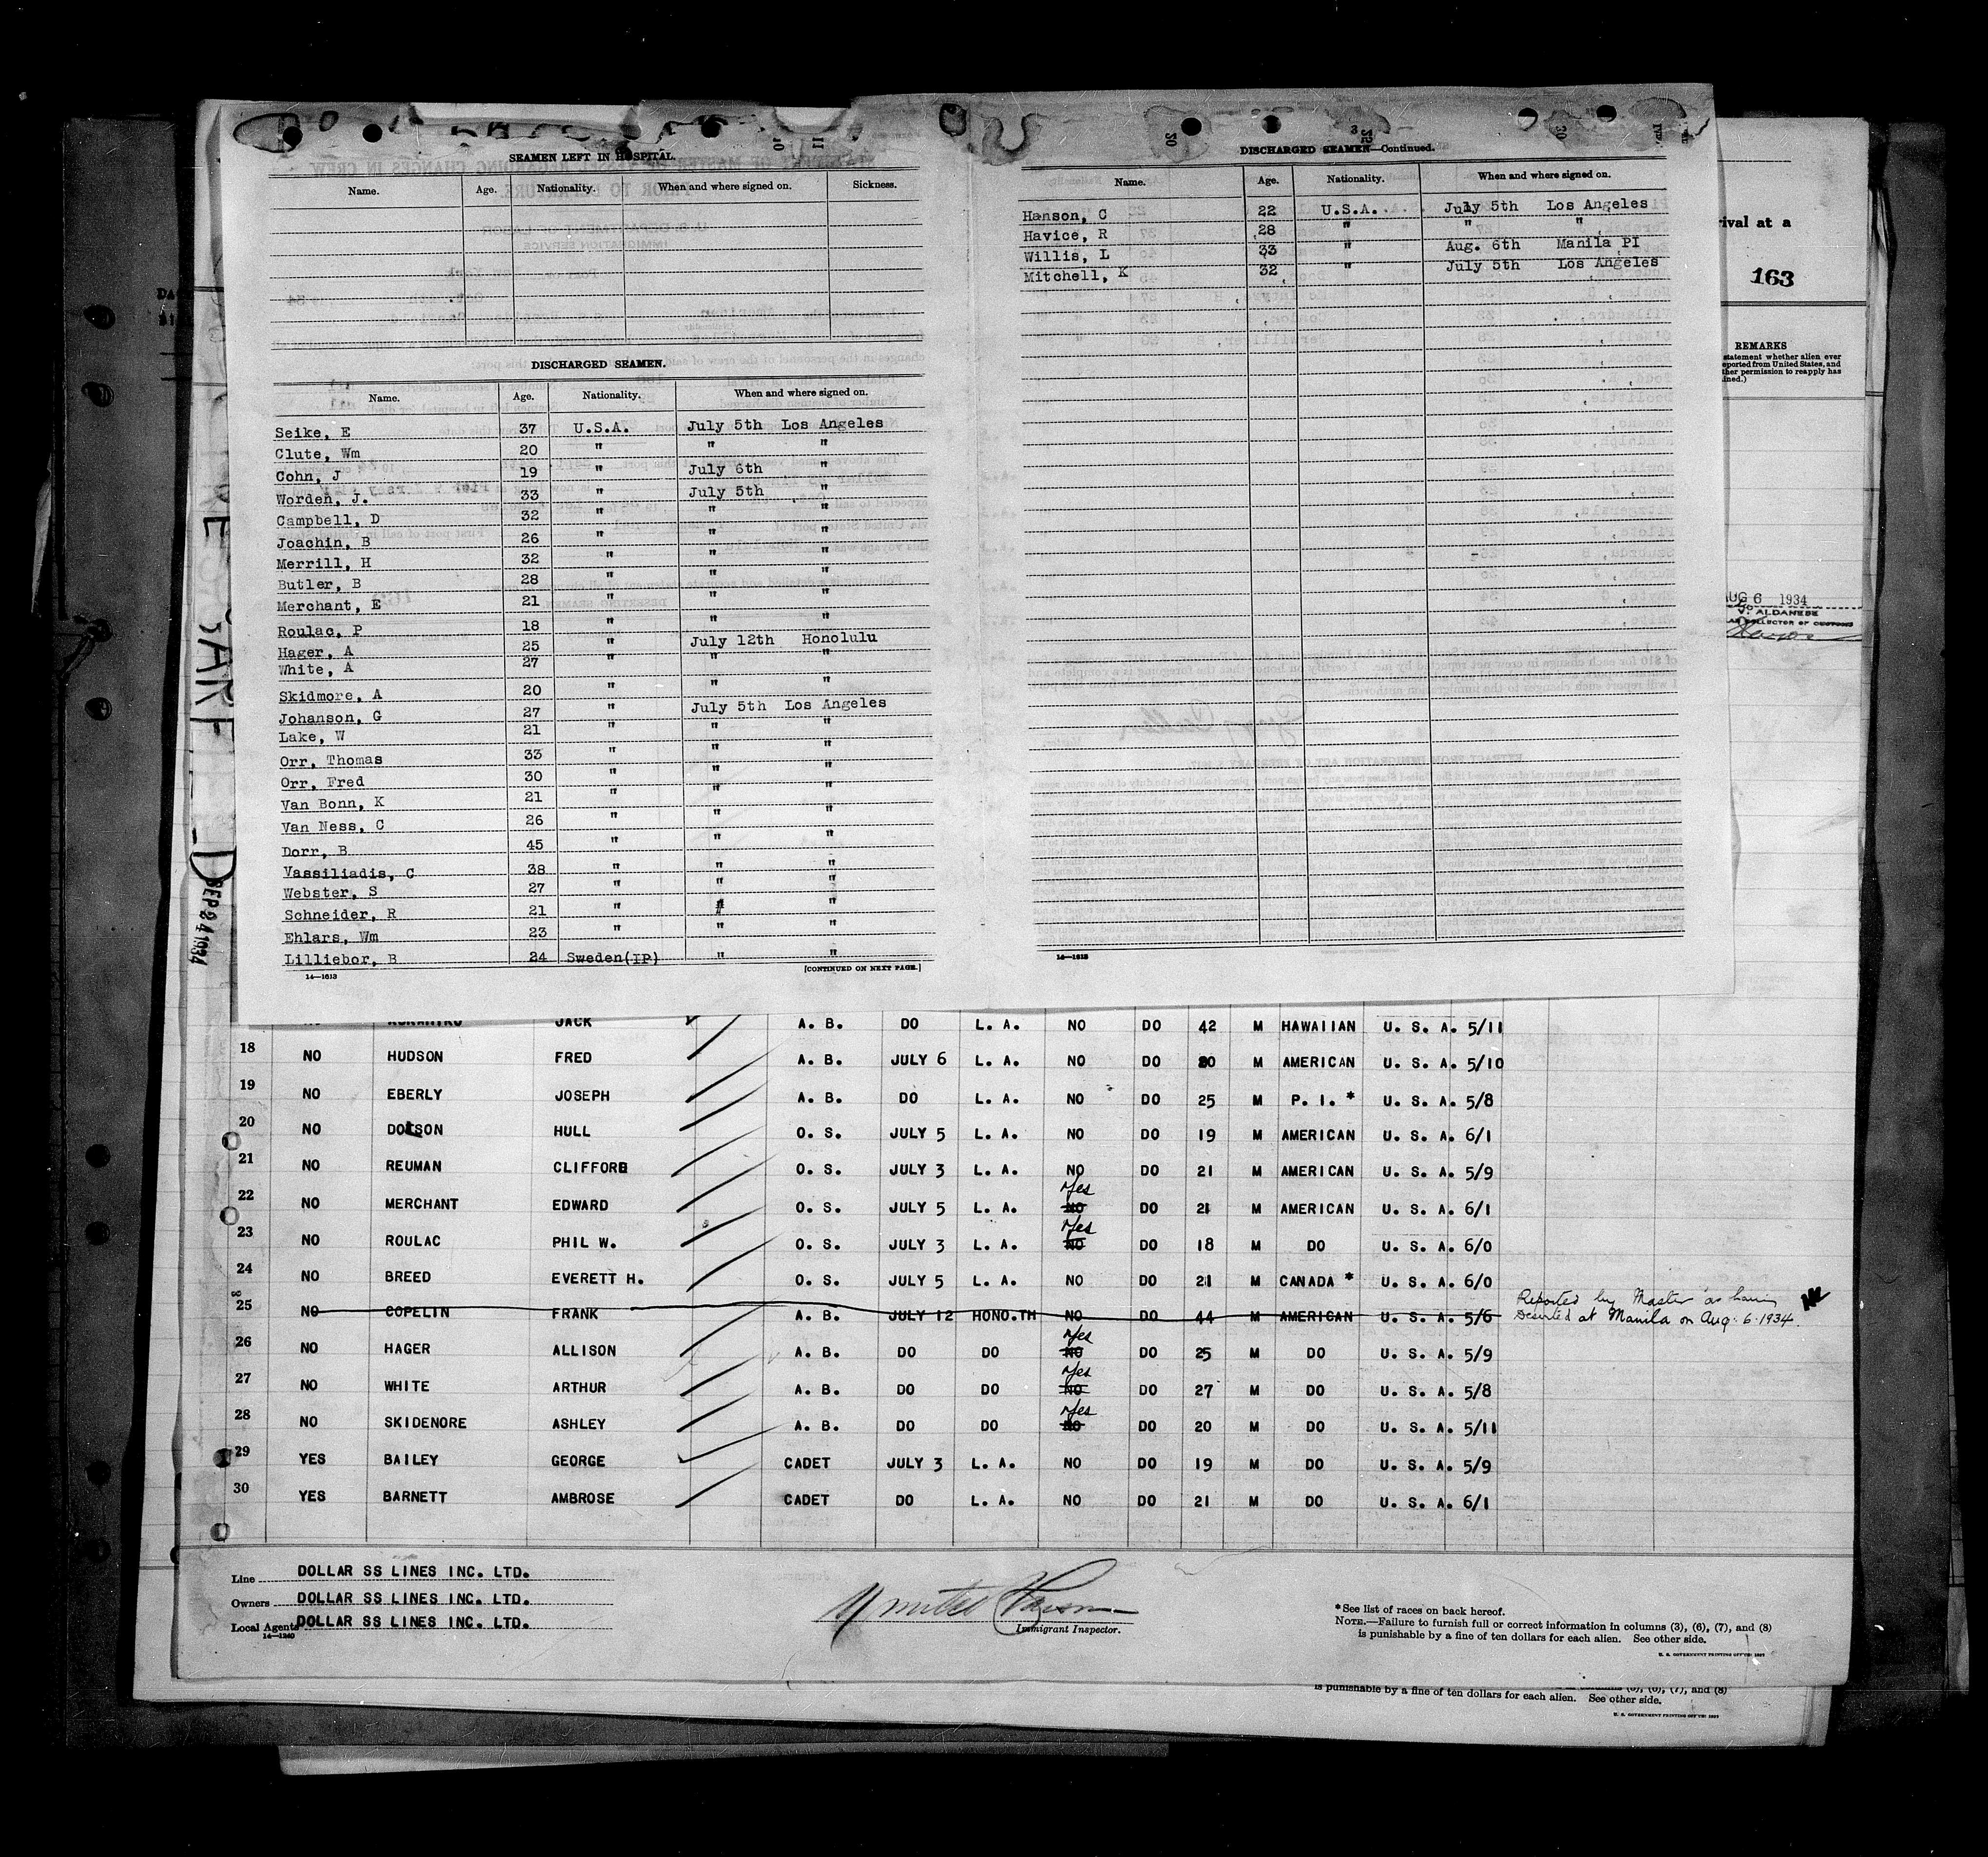 SEAMEN LEFT IN HOSPITAL.
Name. Age. Nationality. When and where signed on. Sickness.
DISCHARGED SEAMEN.
Name. Age. Nationality. When and where signed on.
Seike, E 37 U.S.A. July 5th Los Angeles
Clute, Wm 20 " " "
Cohn, J 19 " July 6th "
Worden, J. 33 " July 5th "
Campbell, D 32 " " "
Joachin, B 26 " " "
Merrill, H 32 " " "
Butler, B 28 " " "
Merchant, E 21 " " "
Roulac, P 18 " " "
Hager, A 25 " July 12th Honolulu
White, A 27 " " "
Skidmore, A 20 " " "
Johanson, G 27 " July 5th Los Angeles
Lake, W 21 " " "
Orr, Thomas 33 " " "
Orr, Fred 30 " " "
Van Bonn, K 21 " " "
Van Ness, C 26 " " "
Dorr, B 45 " " "
Vassiliadis, C 38 " " "
Webster, S 27 " " "
Schneider, R 21 " " "
Ehlars, Wm 23 " " "
Lilliebor, B 24 Sweden(IP) " "
14—1613 [CONTINUED ON NEXT PAGE.]
DISCHARGED SEAMEN—Continued.
Name. Age. Nationality. When and where signed on.
Hanson, C 22 U.S.A. July 5th Los Angeles
Havice, R 28 " " "
Willis, L 33 " Aug. 6th Manila PI
Mitchell, K 32 " July 5th Los Angeles
14—1613
rival at a
163
REMARKS
statement whether alien ever
eported from United States, and
ther permission to reapply has
ined.)
AUG 6 1934
V. ALDANESE
COLLECTOR OF CUSTOMS
SEP 24 1934
JACK A. B. DO L. A. NO DO 42 M HAWAIIAN U. S. A. 5/11
18 NO HUDSON FRED A. B. JULY 6 L. A. NO DO 20 M AMERICAN U. S. A. 5/10
19 NO EBERLY JOSEPH A. B. DO L. A. NO DO 25 M P. I. * U. S. A. 5/8
20 NO DOLSON HULL O. S. JULY 5 L. A. NO DO 19 M AMERICAN U. S. A. 6/1
21 NO REUMAN CLIFFORD O. S. JULY 3 L. A. NO DO 21 M AMERICAN U. S. A. 5/9
22 NO MERCHANT EDWARD O. S. JULY 5 L. A. Yes NO DO 21 M AMERICAN U. S. A. 6/1
23 NO ROULAC PHIL W. O. S. JULY 3 L. A. Yes NO DO 18 M DO U. S. A. 6/0
24 NO BREED EVERETT H. O. S. JULY 5 L. A. NO DO 21 M CANADA * U. S. A. 6/0
25 NO COPELIN FRANK A. B. JULY 12 HONO.TH NO DO 44 M AMERICAN U. S. A. 5/6 Reported by Master as having
Deserted at Manila on Aug. 6. 1934.
26 NO HAGER ALLISON A. B. DO DO Yes NO DO 25 M DO U. S. A. 5/9
27 NO WHITE ARTHUR A. B. DO DO Yes NO DO 27 M DO U. S. A. 5/8
28 NO SKIDENORE ASHLEY A. B. DO DO Yes NO DO 20 M DO U. S. A. 5/11
29 YES BAILEY GEORGE CADET JULY 3 L. A. NO DO 19 M DO U. S. A. 5/9
30 YES BARNETT AMBROSE CADET DO L. A. NO DO 21 M DO U. S. A. 6/1
Line DOLLAR SS LINES INC. LTD.
Owners DOLLAR SS LINES INC. LTD.
Local Agents DOLLAR SS LINES INC. LTD.
14—1240
Immigrant Inspector.
*See list of races on back hereof.
NOTE.—Failure to furnish full or correct information in columns (3), (6), (7), and (8)
is punishable by a fine of ten dollars for each alien. See other side.
U. S. GOVERNMENT PRINTING OFFICE: 1927
(6), (7), and (8)
is punishable by a fine of ten dollars for each alien. See other side.
U. S. GOVERNMENT PRINTING OFFICE: 1927